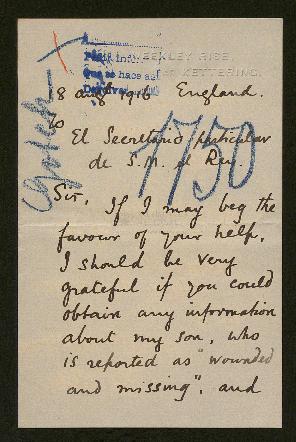 WEEKLEY RISE,
KETTERING.
8 aug 1916 England.
El Secretario particular
de S. M. el Rey.
1750
Sir,
If I may beg the
favour of your help,
I should be very
grateful if you could
obtain any information
about my son, who
is reported as "wounded
and missing", and